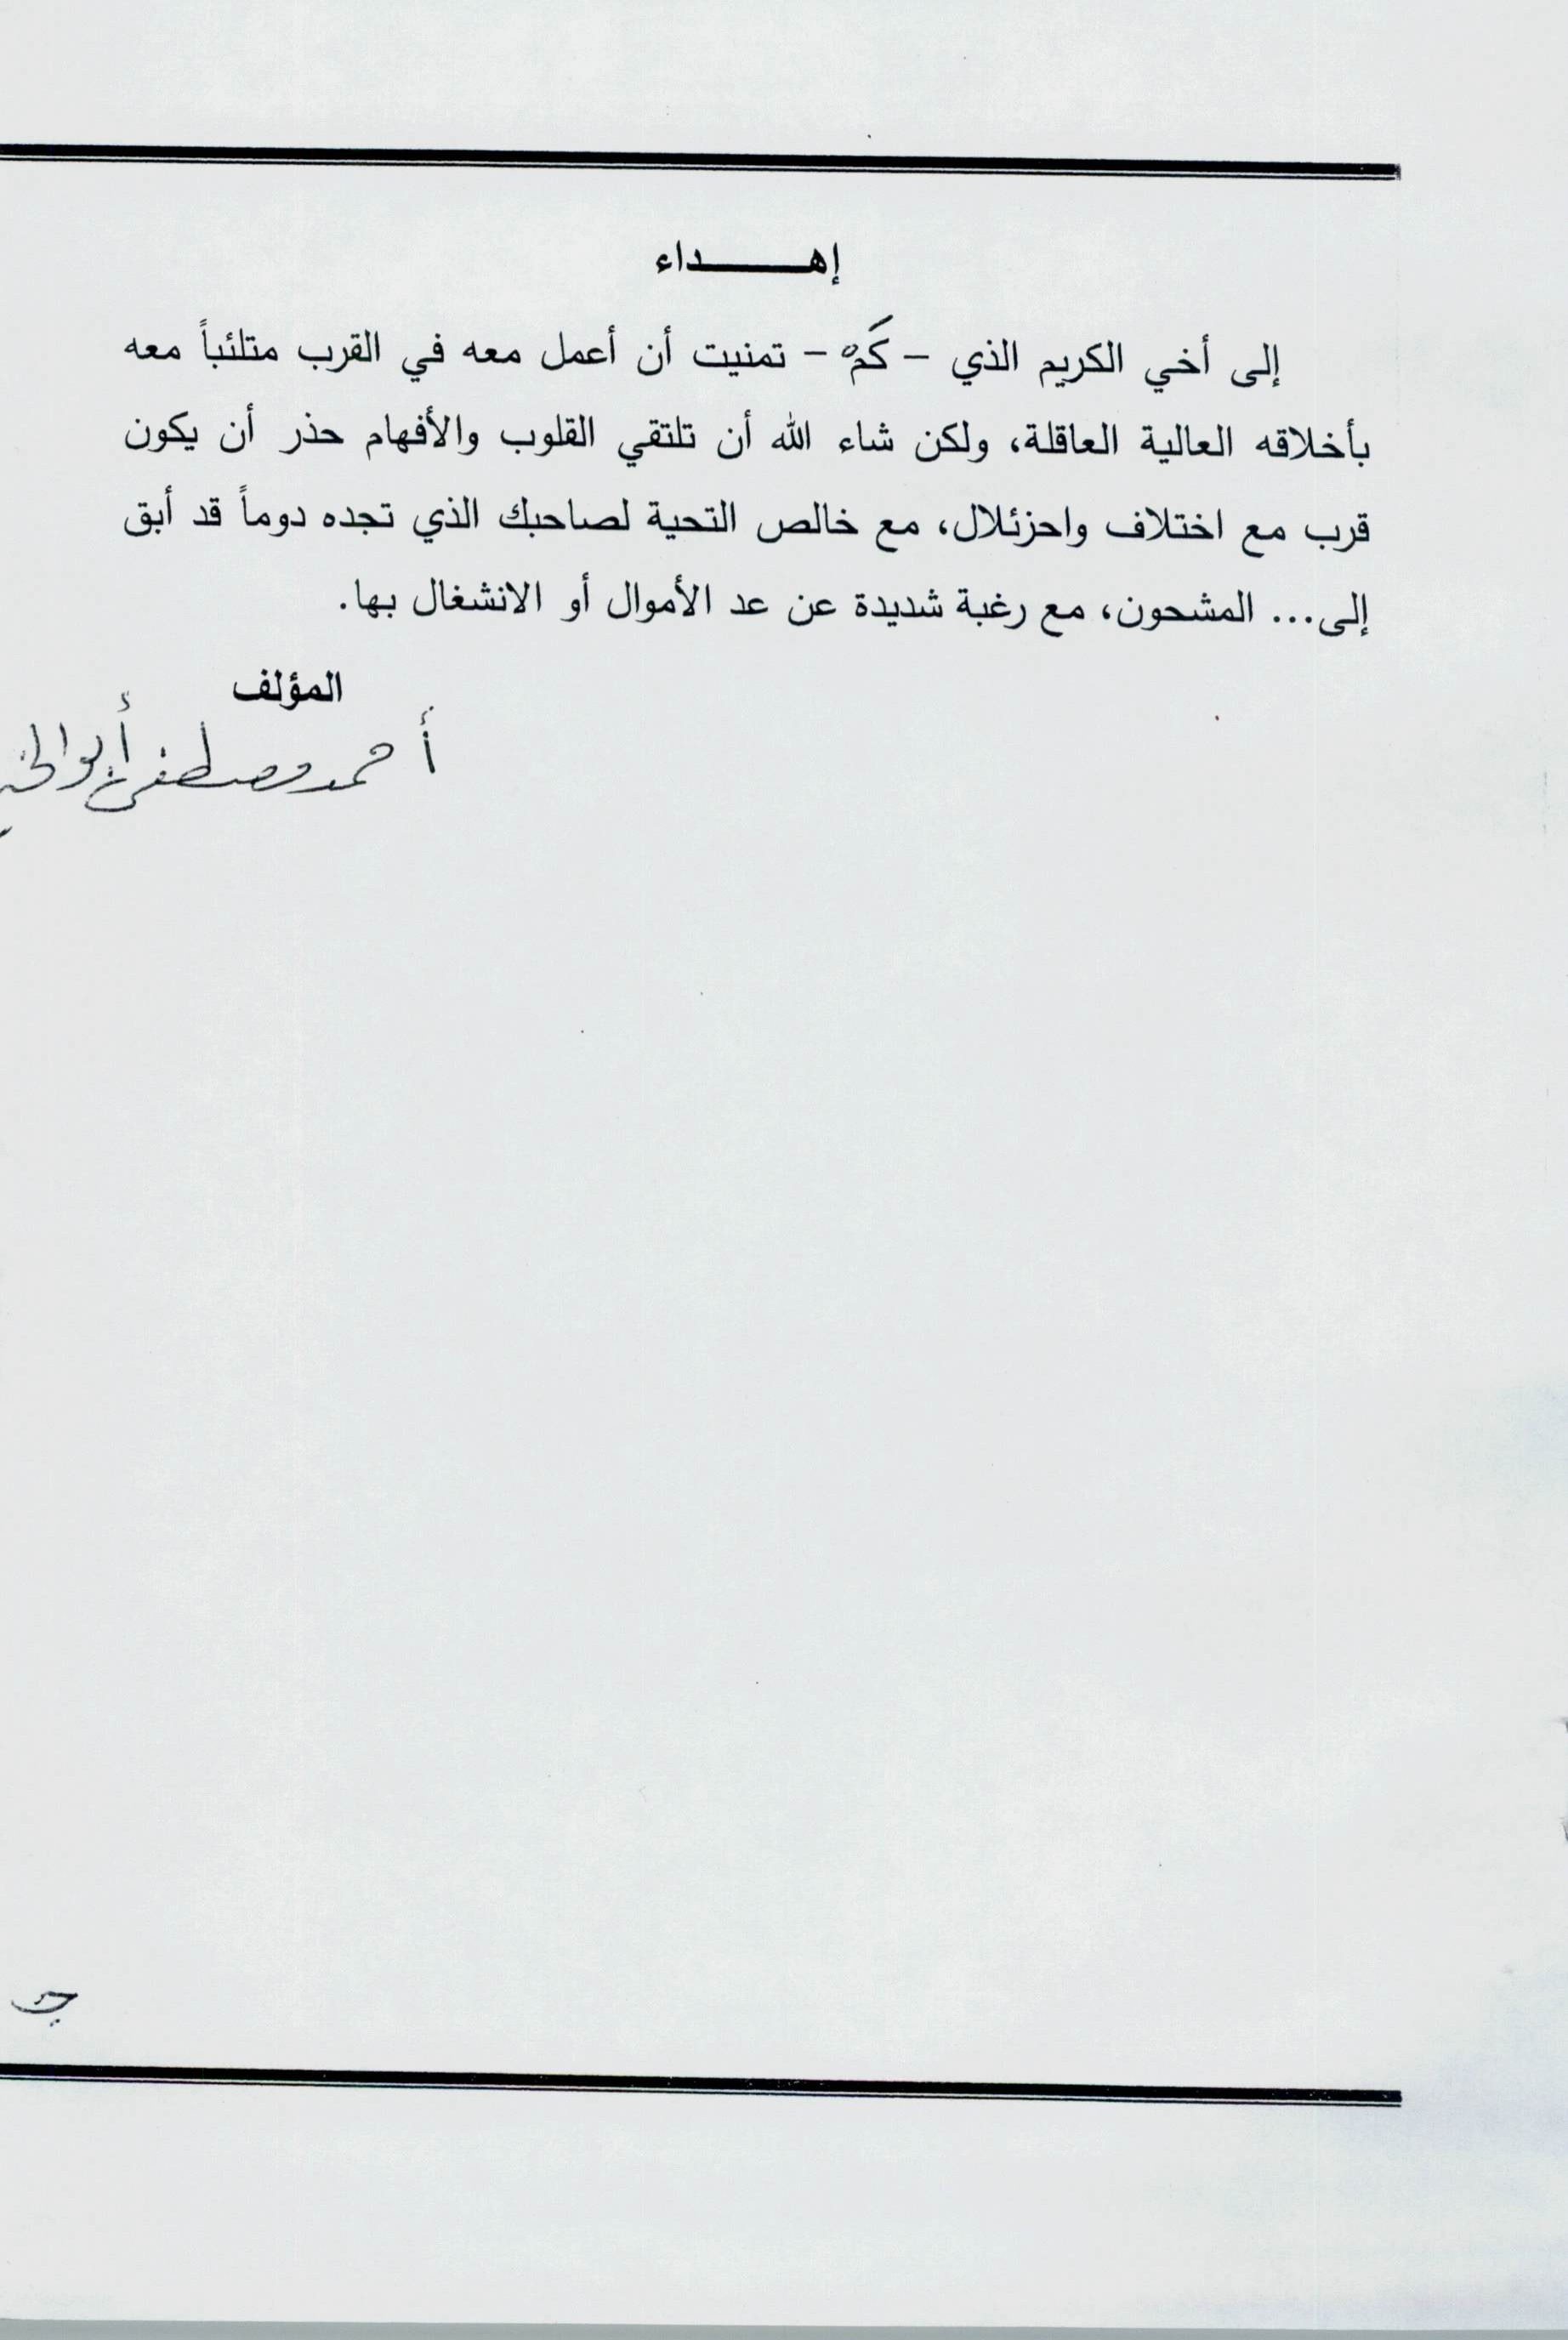 إهـــــــداء
إلى أخي الكريم الذي – كَمْ – تمنيت أن أعمل معه في القرب متلئباً معه
بأخلاقه العالية العاقلة، ولكن شاء الله أن تلتقي القلوب والأفهام حذر أن يكون
قرب مع اختلاف واحزئلال، مع خالص التحية لصاحبك الذي تجده دوماً قد أبق
إلى... المشحون، مع رغبة شديدة عن عد الأموال أو الانشغال بها.
المؤلف
أحمد مصطفى أبو الخير